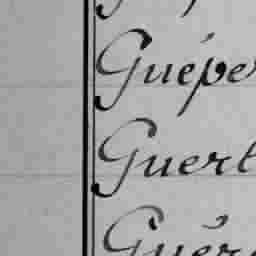 Guépe
Guerl
Guér